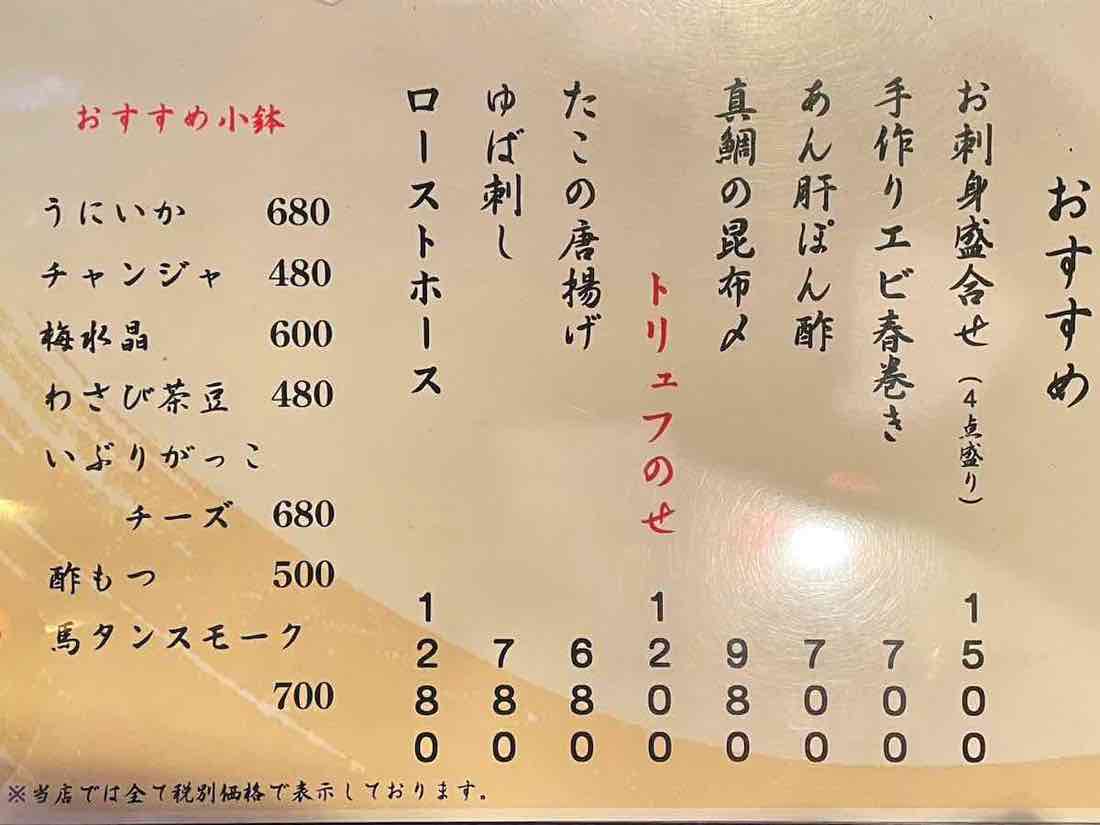 おすすめ
お刺身盛合せ(4点盛り) 1500
手作りエビ春巻き 700
あん肝ぽん酢 700
真鯛の昆布〆 980
トリュフのせ 1200
たこの唐揚げ 680
ゆば刺し 780
ローストホース 1280
おすすめ小鉢
うにいか 680
チャンジャ 480
梅水晶 600
わさび茶豆 480
いぶりがっこ
チーズ 680
酢もつ 500
馬タンスモーク
700
※当店では全て税別価格で表示しております。